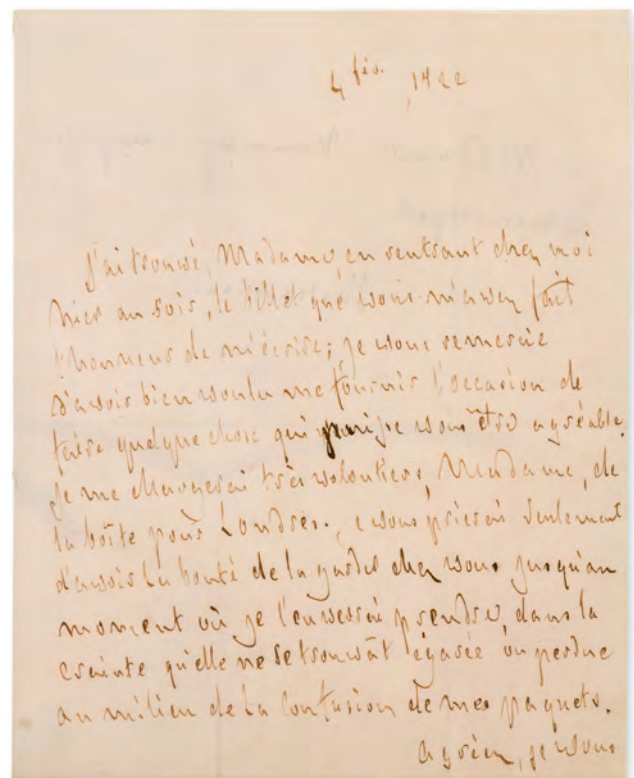 4 fév. 1822
J'ai trouvé, Madame, en rentrant chez moi
hier au soir, le billet que vous m'avez fait
l'honneur de m'écrire; je vous remercie
d'avoir bien voulu me fournir l'occasion de
faire quelque chose qui puisse vous être agréable.
je me chargerai très volontiers, Madame, de
la boîte pour Londres. je vous prierai seulement
d'avoir la bonté de la garder chez vous jusqu'au
moment où je l'enverrai prendre, dans la
crainte qu'elle ne se trouvât égarée ou perdue
au milieu de la confusion de mes paquets.
agréez, je vous